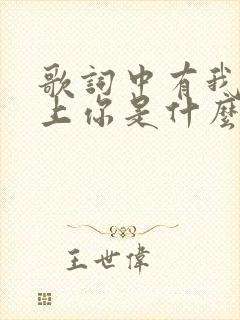 歌詞中有我
上你是什麼
王世偉